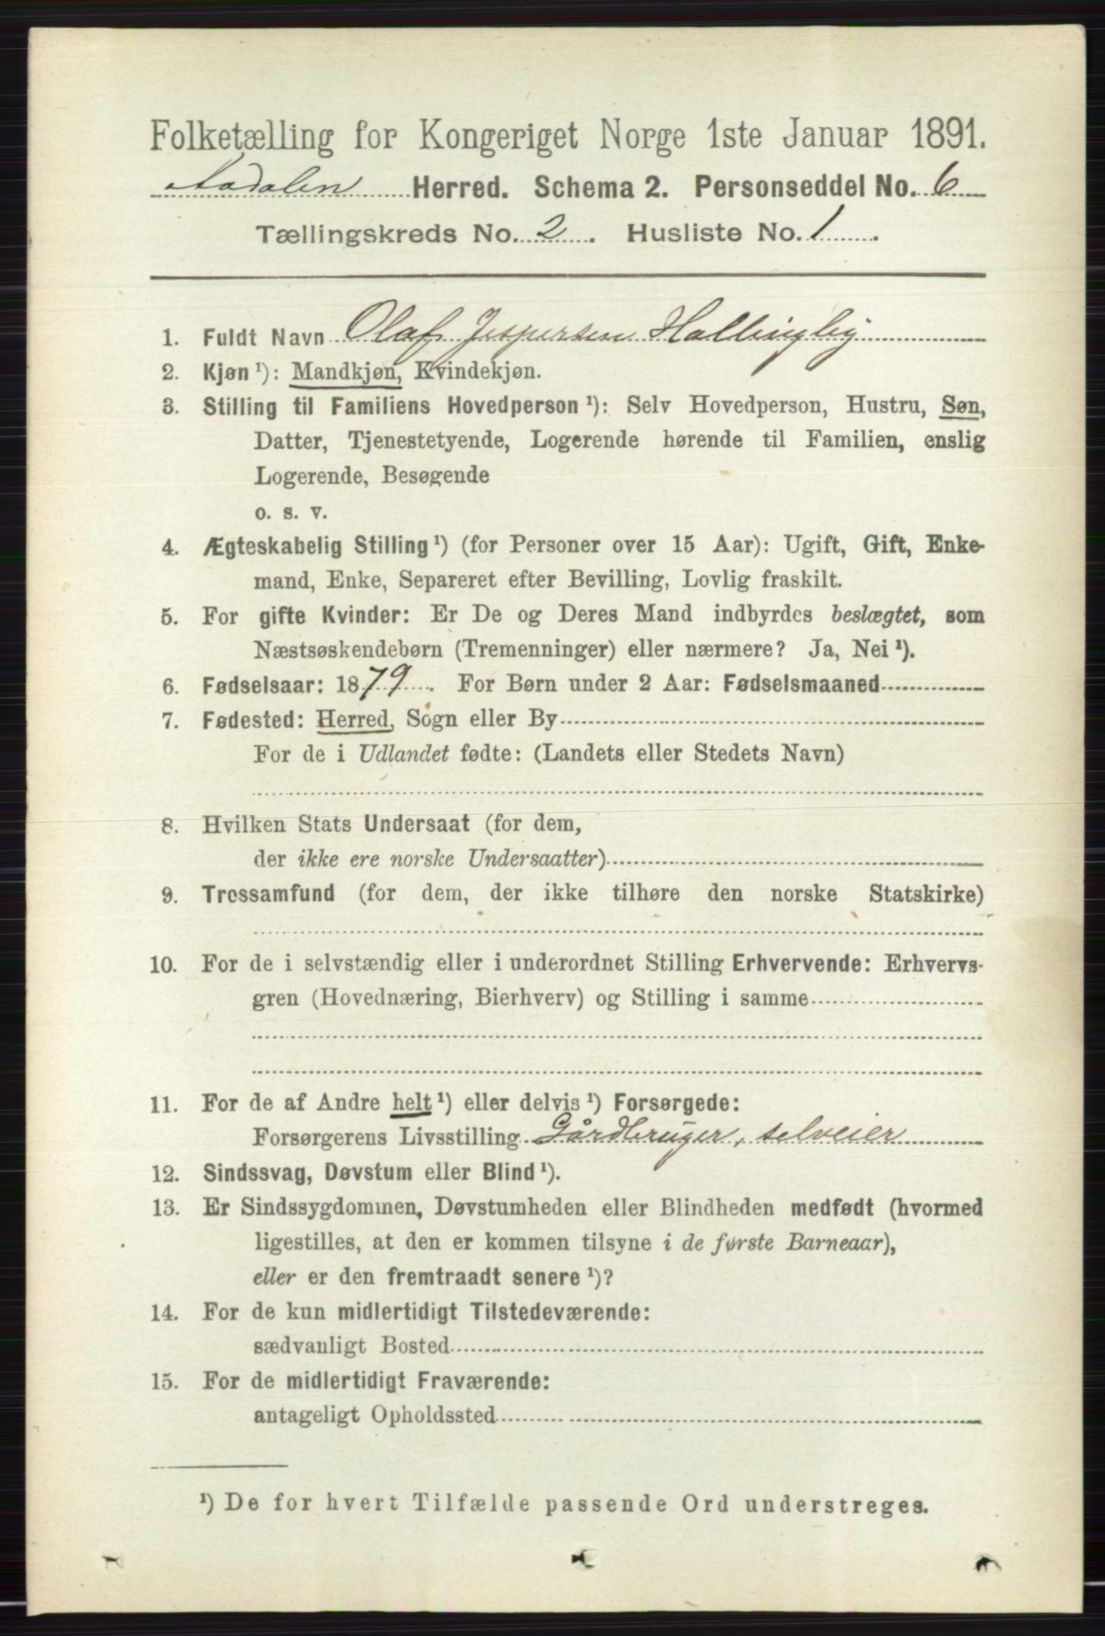 Folketælling for Kongeriget Norge 1ste Januar 1891.
Aadalen Herred. Schema 2. Personseddel No. 6
Tællingskreds No. 2. Husliste No. 1.
1. Fuldt Navn Olaf Jespersen Hallingby
2. Kjøn ¹): Mandkjøn, Kvindekjøn.
3. Stilling til Familiens Hovedperson ¹): Selv Hovedperson, Hustru, Søn,
Datter, Tjenestetyende, Logerende hørende til Familien, enslig
Logerende, Besøgende
o. s. v.
4. Ægteskabelig Stilling ¹) (for Personer over 15 Aar): Ugift, Gift, Enke-
mand, Enke, Separeret efter Bevilling, Lovlig fraskilt.
5. For gifte Kvinder: Er De og Deres Mand indbyrdes beslægtet, som
Næstsøskendebørn (Tremenninger) eller nærmere? Ja, Nei ¹).
6. Fødselsaar: 1879. For Børn under 2 Aar: Fødselsmaaned
7. Fødested: Herred, Sogn eller By
For de i Udlandet fødte: (Landets eller Stedets Navn)
8. Hvilken Stats Undersaat (for dem,
der ikke ere norske Undersaatter)
9. Trossamfund (for dem, der ikke tilhøre den norske Statskirke)
10. For de i selvstændig eller i underordnet Stilling Erhvervende: Erhvervs-
gren (Hovednæring, Bierhverv) og Stilling i samme
11. For de af Andre helt ¹) eller delvis ¹) Forsørgede:
Forsørgerens Livsstilling Gårdbruger, selveier
12. Sindssvag, Døvstum eller Blind ¹).
13. Er Sindssygdommen, Døvstumheden eller Blindheden medfødt (hvormed
ligestilles, at den er kommen tilsyne i de første Barneaar),
eller er den fremtraadt senere ¹)?
14. For de kun midlertidigt Tilstedeværende:
sædvanligt Bosted
15. For de midlertidigt Fraværende:
antageligt Opholdssted
¹) De for hvert Tilfælde passende Ord understreges.